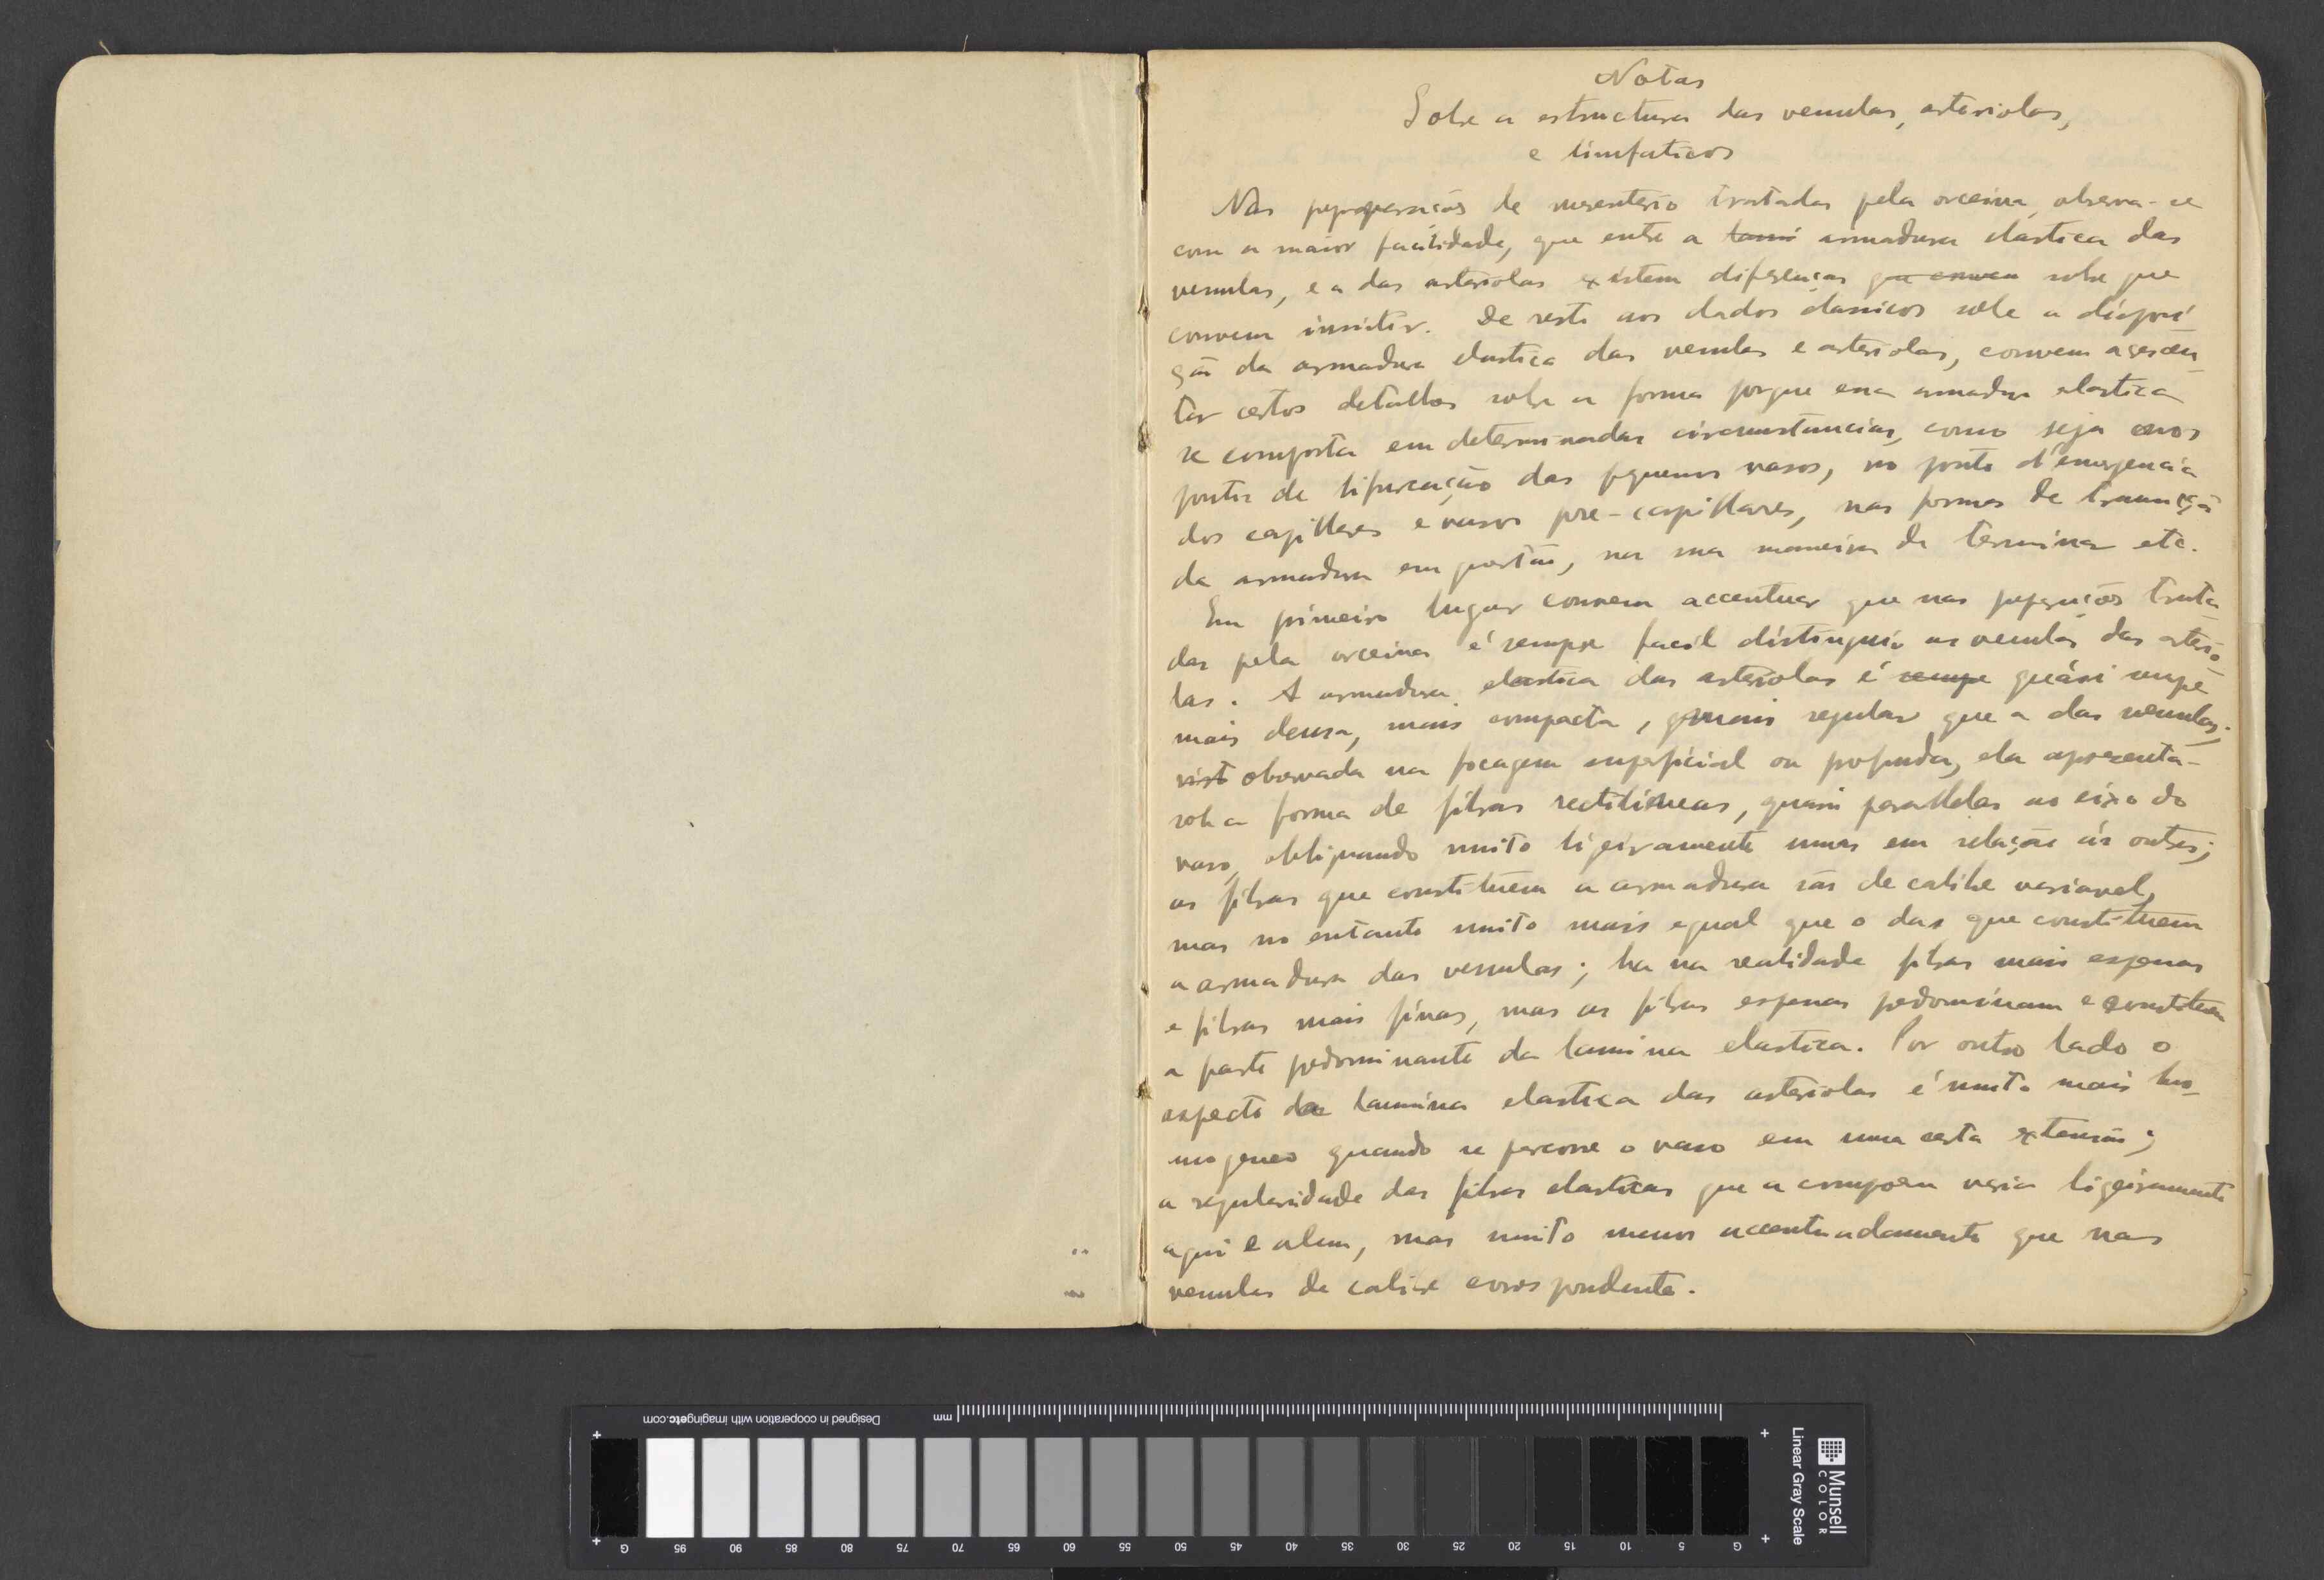 Notas
Sobre a estructura das venulas, arteriolas,
e limfaticos
Nas preparações de mesenterio tratadas pela orceina, observa-se
com a maior facilidade, que entre a lami armadura elastica das
venulas, e a das arteriolas existem diferenças que conven sobre que
convem insistir. De resto aos dados classicos sobre a disposi
ção da armadura elastica das venulas e arteriolas, convem acrescen
tar certos detalhes sobre a forma porque essa armadura elastica
se comporta em determinadas circumstancias, como seja nos
pontos de bifurcação dos pequenos vasos, no ponto d'emergencia
dos capillares e vasos pre-capillares, nas formas de transição
da armadura em questão, na sua maneira de terminar etc.
Em primeiro lugar convem accentuar que nas preparações trata
das pela orceina é sempre facil distinguir as venulas das arterio
las. A armadura elastica das arteriolas é sempre quási sempre
mais densa, mais compacta, mais regular que a das venulas;
vist observada na focagem superficial ou profunda, ela apresenta-
sob a forma de fibras rectilineas, quasi parallelas ao eixo do
vaso, obliquando muito ligeiramente umas em relação ás outras;
as fibras que constituem a armadura são de calibre variavel,
mas no entanto muito mais egual que o das que constituem
a armadura das venulas; ha na realidade fibras mais espessas
e fibras mais finas, mas as fibras espessas predominam e constituem
a parte predominante da lamina elastica. Por outro lado o
aspecto da lamina elastica das arteriolas é muito mais ho-
mogeneo quando se percorre o vaso em uma certa extensão;
a regularidade das fibras elasticas que a compoem varia ligeiramente
aqui e alem, mas muito menos accentuadamente que nas
venulas de calibre correspondente.
Designed in cooperation with imagingetc.com
mm
Munsell
COLOR
Linear Gray Scale
G 95 90 85 80 75 70 65 60 55 50 45 40 35 30 25 20 15 10 5 G